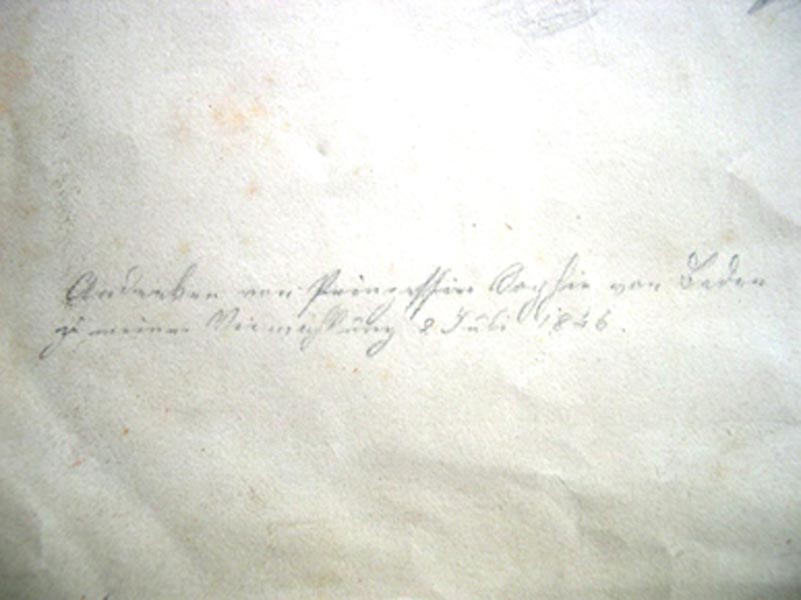 Andenken von Prinzessin Sophie von Baden
zu meiner Vermählung 2 Juli 1846.